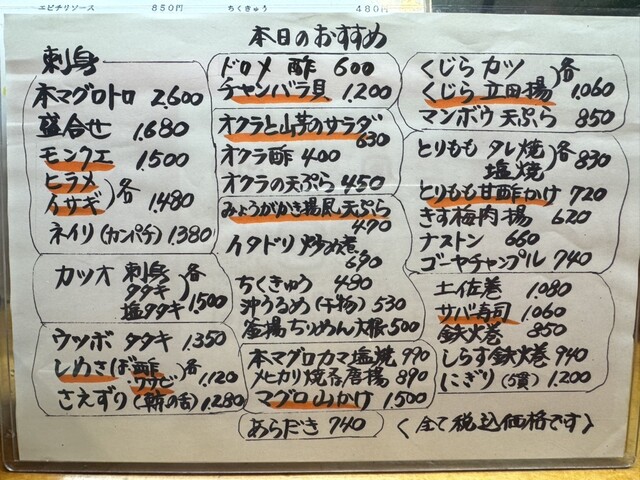 エビチリソース 850円 ちくきゅう 480円
本日のおすすめ
刺身
本マグロトロ 2,600
盛合せ 1,680
モンクエ 1,500
ヒラメ
イサギ 各 1,480
ネイリ(カンパチ) 1,380
カツオ 刺身
タタキ 各
塩タタキ 1,500
ウツボ タタキ 1,350
しめさば 酢 各
ワサビ 1,120
さえずり(鯨の舌) 1,280
ドロメ 酢 600
チャンバラ貝 1,200
オクラと山芋のサラダ
630
オクラ酢 400
オクラの天ぷら 450
みょうがかき揚風天ぷら
490
イタドリ 炒め煮
690
ちくきゅう 480
沖うるめ(干物) 530
釜揚ちりめん大根 500
本マグロカマ 塩焼 990
メヒカリ焼 唐揚 890
マグロ 山かけ 1,500
あらだき 740
くじら カツ 各
くじら 立田揚 1,060
マンボウ 天ぷら 850
とりもも タレ焼 各 830
塩焼
とりもも甘酢かけ 720
きす梅肉揚 620
ナストン 660
ゴーヤチャンプル 740
土佐巻 1,080
サバ寿司 1,060
鉄火巻 850
しらす鉄火巻 940
にぎり(5貫) 1,200
〈全て税込価格です〉